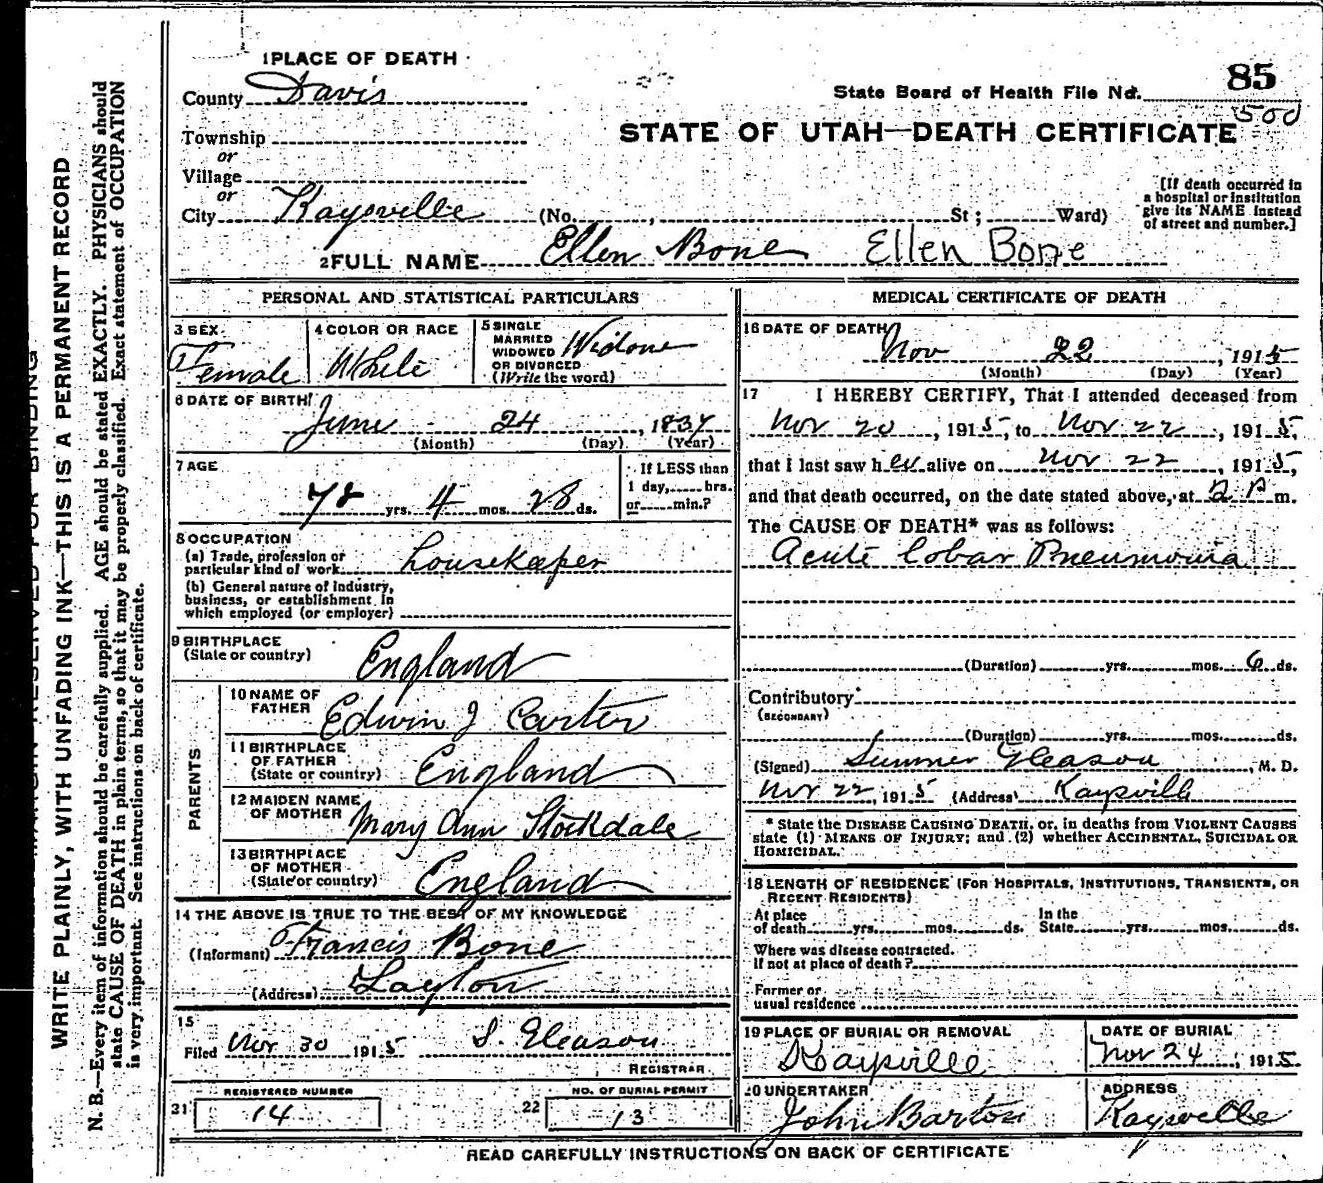 1 PLACE OF DEATH
County Davis
Township
or
Village
or
City Kaysville (No. , St ; Ward)
State Board of Health File No. 85
500
STATE OF UTAH—DEATH CERTIFICATE
[If death occurred in
a hospital or institution
give its NAME instead
of street and number.]
2 FULL NAME Ellen Bone Ellen Bone
PERSONAL AND STATISTICAL PARTICULARS
3 SEX Female
4 COLOR OR RACE White
5 SINGLE
MARRIED
WIDOWED
OR DIVORCED
(Write the word)
Widow
6 DATE OF BIRTH
June 24, 1837
(Month) (Day) (Year)
7 AGE
78 yrs. 4 mos. 28 ds.
If LESS than
1 day, hrs.
or min.?
8 OCCUPATION
(a) Trade, profession or
particular kind of work housekeeper
(b) General nature of industry,
business, or establishment in
which employed (or employer)
9 BIRTHPLACE
(State or country) England
PARENTS
10 NAME OF
FATHER Edwin J Carter
11 BIRTHPLACE
OF FATHER
(State or country) England
12 MAIDEN NAME
OF MOTHER Mary Ann Stockdale
13 BIRTHPLACE
OF MOTHER
(State or country) England
14 THE ABOVE IS TRUE TO THE BEST OF MY KNOWLEDGE
(Informant) Francis Bone
(Address) Layton
15
Filed Nov 30 1915 S. Gleason
REGISTRAR
REGISTERED NUMBER
21 14
NO. OF BURIAL PERMIT
22 13
MEDICAL CERTIFICATE OF DEATH
16 DATE OF DEATH
Nov 22, 1915
(Month) (Day) (Year)
17 I HEREBY CERTIFY, That I attended deceased from
Nov 20, 1915, to Nov 22, 1915,
that I last saw her alive on Nov 22, 1915,
and that death occurred, on the date stated above, at 2 P m.
The CAUSE OF DEATH* was as follows:
Acute Lobar Pneumonia
(Duration) yrs. mos. 6 ds.
Contributory
(SECONDARY)
(Duration) yrs. mos. ds.
(Signed) Sumner Gleason, M. D.
Nov 22, 1915 (Address) Kaysville
* State the DISEASE CAUSING DEATH, or, in deaths from VIOLENT CAUSES
state (1) MEANS OF INJURY; and (2) whether ACCIDENTAL, SUICIDAL OR
HOMICIDAL.
18 LENGTH OF RESIDENCE (FOR HOSPITALS, INSTITUTIONS, TRANSIENTS, OR
RECENT RESIDENTS)
At place
of death yrs. mos. ds.
In the
State yrs. mos. ds.
Where was disease contracted.
If not at place of death?
Former or
usual residence
19 PLACE OF BURIAL OR REMOVAL
Kaysville
DATE OF BURIAL
Nov 24, 1915
20 UNDERTAKER
John Barton
ADDRESS
Kaysville
READ CAREFULLY INSTRUCTIONS ON BACK OF CERTIFICATE
MARGIN RESERVED FOR BINDING
WRITE PLAINLY, WITH UNFADING INK—THIS IS A PERMANENT RECORD
N. B.—Every item of information should be carefully supplied. AGE should be stated EXACTLY. PHYSICIANS should
state CAUSE OF DEATH in plain terms, so that it may be properly classified. Exact statement of OCCUPATION
is very important. See instructions on back of certificate.